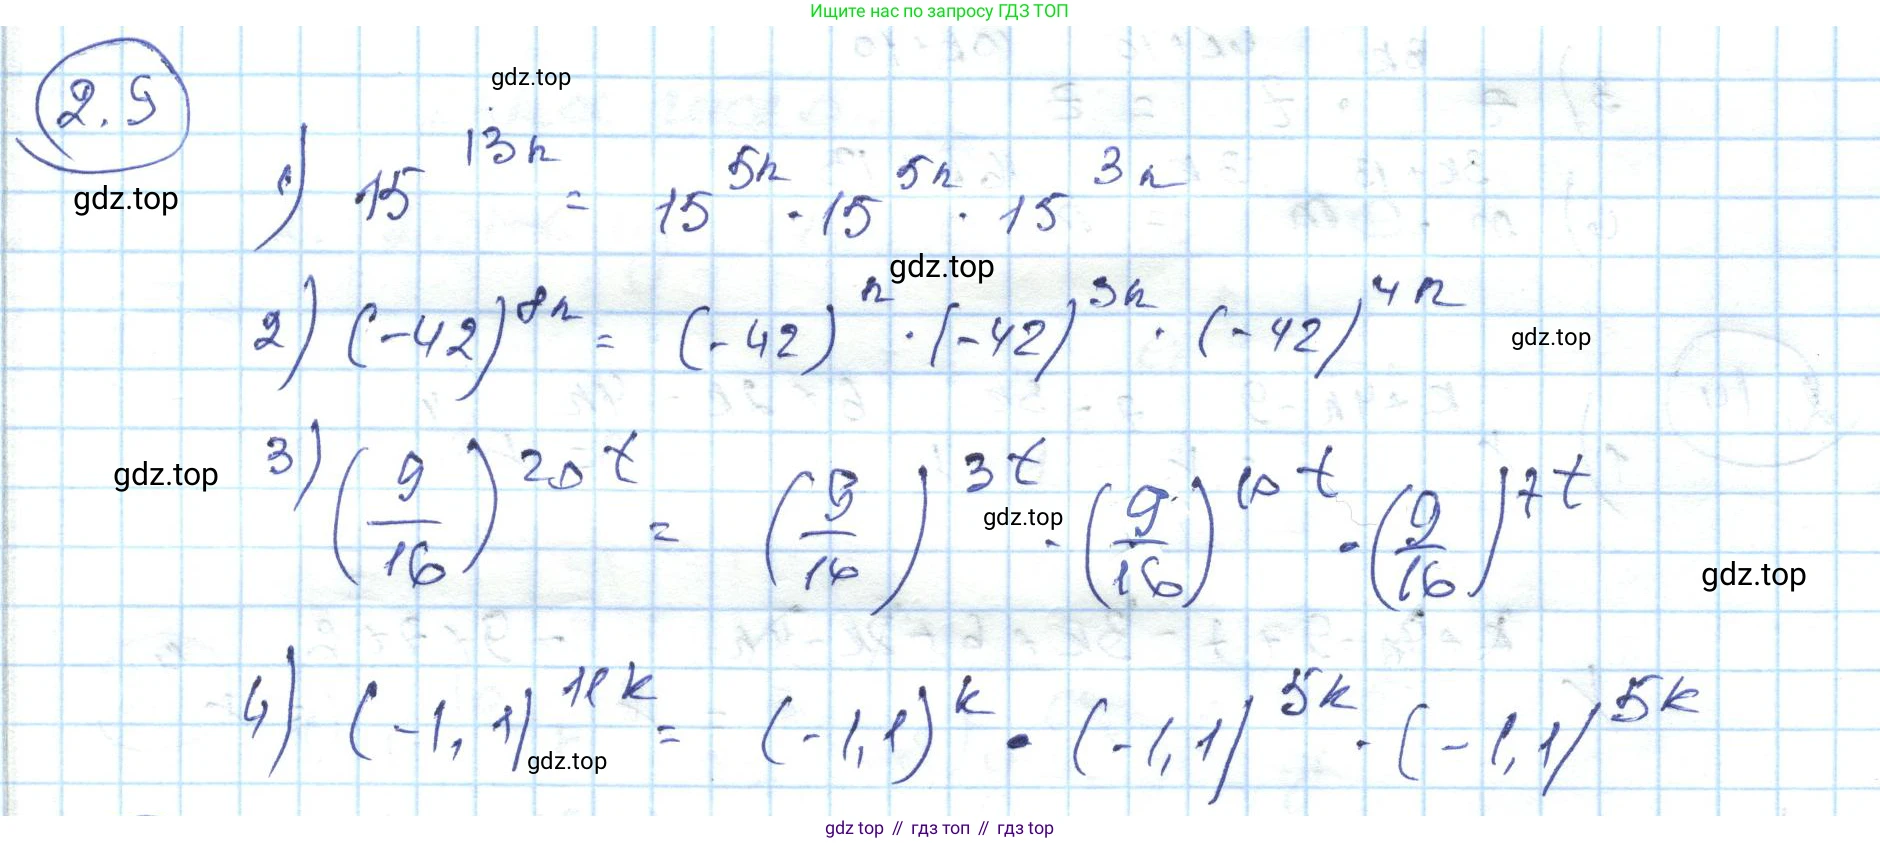 Ищите нас по запросу ГДЗ ТОП
2.9
gdz.top
1) 15^{13n} = 15^{5n} · 15^{5n} · 15^{3n}
gdz.top
gdz.top
2) (-42)^{8n} = (-42)^{n} · (-42)^{3n} · (-42)^{4n}
gdz.top
3) (9/16)^{20t} = (9/16)^{3t} · (9/16)^{10t} · (9/16)^{7t}
gdz.top
gdz.top
gdz.top
4) (-1,1)^{11k} = (-1,1)^{k} · (-1,1)^{5k} · (-1,1)^{5k}
gdz.top
gdz top // гдз топ // gdz top